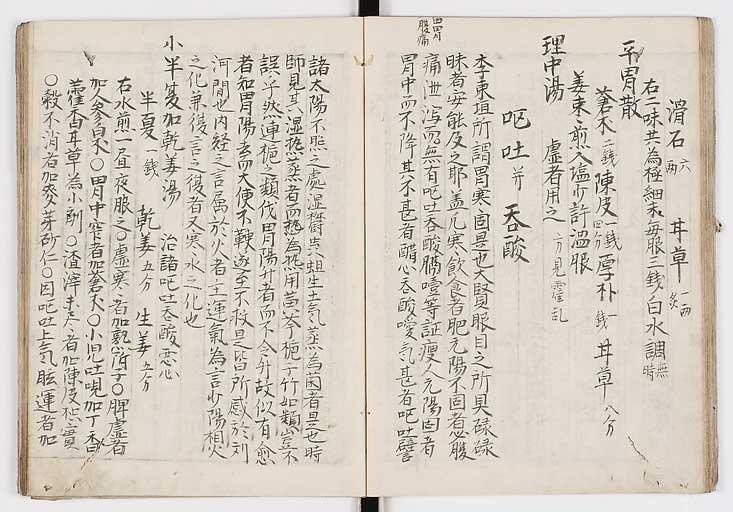 滑石 六両 甘草 一両 炙
右二味共為極細末毎服三銭白水調無時
平胃散
蒼朮 二銭 陳皮 一銭四分 厚朴 一銭 甘草 八分
姜棗煎入塩少許温服
理中湯 虚者用之 方見霍乱
嘔吐 并 呑酸
胃
腹痛
李東垣所謂胃寒固是也大賢眼目之所具碌碌
昧者安能及之耶蓋凡寒飲食者肥元陽不固者必腹
痛泄瀉而無有吐呑酸膈噎等証瘦人元陽固者
胃中而不降其不甚者醋心呑酸噯気甚者吐譬
諸太陽不照之処湿樹共蛆生土気蒸為菌者是也時
師見其湿熱蒸者而為熱用苗芩梔子竹如類豈不
誤乎然連梔之類伐胃陽升者而不令升故似有愈
者和胃陽去而大便不鞕遂至不救是皆所惑於刘
河間也内経之言属於火者主運気為言少陽相火
之化兼後言之後者又寒水之化也
小半夏加乾姜湯 治諸吐呑酸悪心
半夏 一銭 乾姜 五分 生姜 五分
右水煎一昼夜服之○虚寒者加附子○脾虚者
加人参白朮○胃中窄者加蒼朮○小児吐哯加丁香
藿香甘草為小剤○渣滓未尽者加陳皮枳實
○穀不消者加麦芽砂仁○因吐上気眩運者加